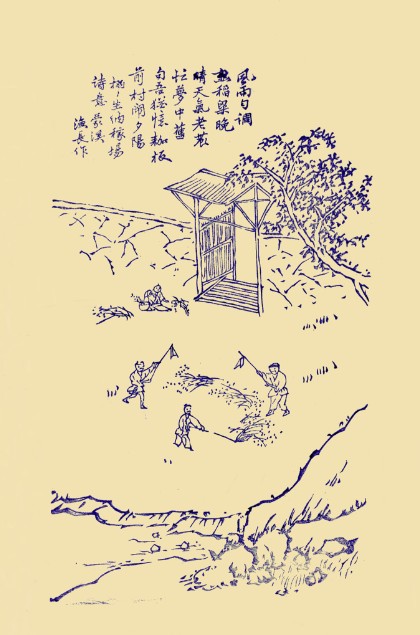 風雨勻调
熟稻粱晚
晴天氣老農
忙夢中舊
句吾猶憶枷板
前村鬧夕陽
生納稼場
詩意蒙溪
漁長作